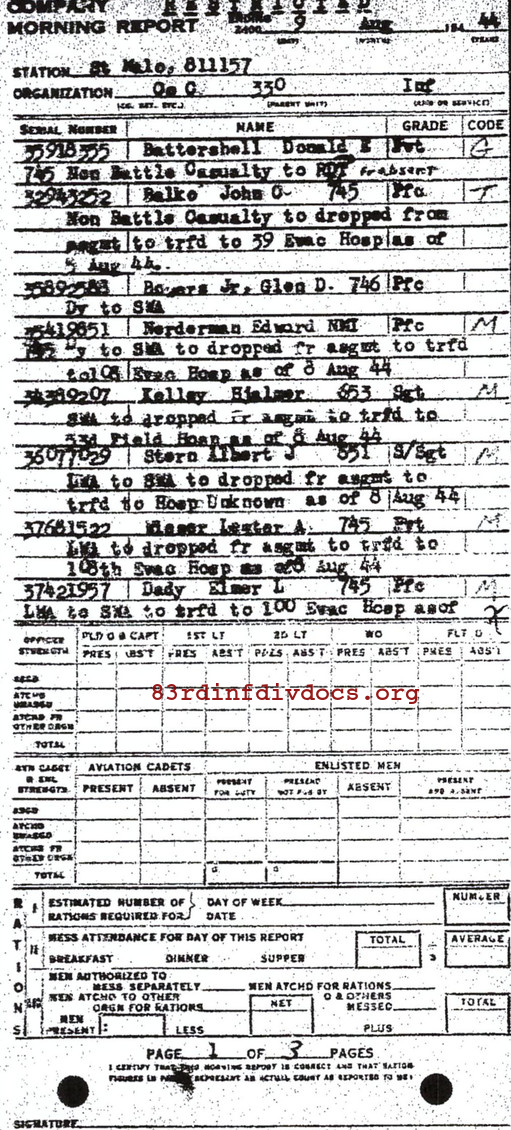 COMPANY RESTRICTED
MORNING REPORT ENDING 2400 9 Aug 1944
(DAY) (MONTH) (YEAR)
STATION St Malo, 811157
ORGANIZATION Co C 330 Inf
(CO. DET. ETC.) (PARENT UNIT) (ARM OR SERVICE)
SERIAL NUMBER NAME GRADE CODE
35918355 Battershell Donald E Pvt G
745 Non Battle Casualty to RDT fr absent
32943252 Balko John C 745 Pfc. T
Non Battle Casualty to dropped from
asgmt to trfd to 39 Evac Hosp as of
5 Aug 44.
35892588 Bowers Jr, Glen D. 746 Pfc
Dy to SWA
35419851 Nerderman Edward NMI Pfc M
745 Dy to SWA to dropped fr asgmt to trfd
to108 Evac Hosp as of 8 Aug 44
34389207 Kelley Hjalmer 653 Sgt M
SWA to dropped fr asgmt to trfd to
53d Field Hosp as of 8 Aug 44
36077029 Stern Albert J 651 S/Sgt M
LWA to SWA to dropped fr asgmt to
trfd to Hosp Unknown as of 8 Aug 44
37681522 Lester A. 745 Pvt M
LWA to dropped fr asgmt to trfd to
108th Evac Hosp as of8 Aug 44
37421957 Dady Elmer L 745 Pfc M
LWA to SWA to trfd to 100 Evac Hosp asof
OFFICER STRENGTH FLD O & CAPT 1ST LT 2D LT WO FLT O
PRES ABS'T PRES ABS'T PRES ABS'T PRES ABS'T PRES ABS'T
ASGD
ATCHD UNASGD
ATCHD FR OTHER ORGN
TOTAL
83rdinfdivdocs.org
AVN CADET & ENL STRENGTH AVIATION CADETS ENLISTED MEN
PRESENT ABSENT PRESENT FOR DUTY PRESENT NOT FOR DY ABSENT PRESENT AND ABSENT
ASGD
ATCHD UNASGD
ATCHD FR OTHER ORGN
TOTAL
RATIONS
I ESTIMATED NUMBER OF RATIONS REQUIRED FOR } DAY OF WEEK DATE NUMBER
II MESS ATTENDANCE FOR DAY OF THIS REPORT TOTAL ÷ 3 AVERAGE
BREAKFAST DINNER SUPPER
III MEN AUTHORIZED TO MESS SEPARATELY MEN ATCHD FOR RATIONS
MEN ATCHD TO OTHER ORGN FOR RATIONS NET O & OTHERS MESSED TOTAL
MEN PRESENT: LESS PLUS
PAGE 1 OF 3 PAGES
I CERTIFY THAT THIS MORNING REPORT IS CORRECT AND THAT RATION
FIGURES IN PART REPRESENT AN ACTUAL COUNT AS REPORTED TO ME:
SIGNATURE